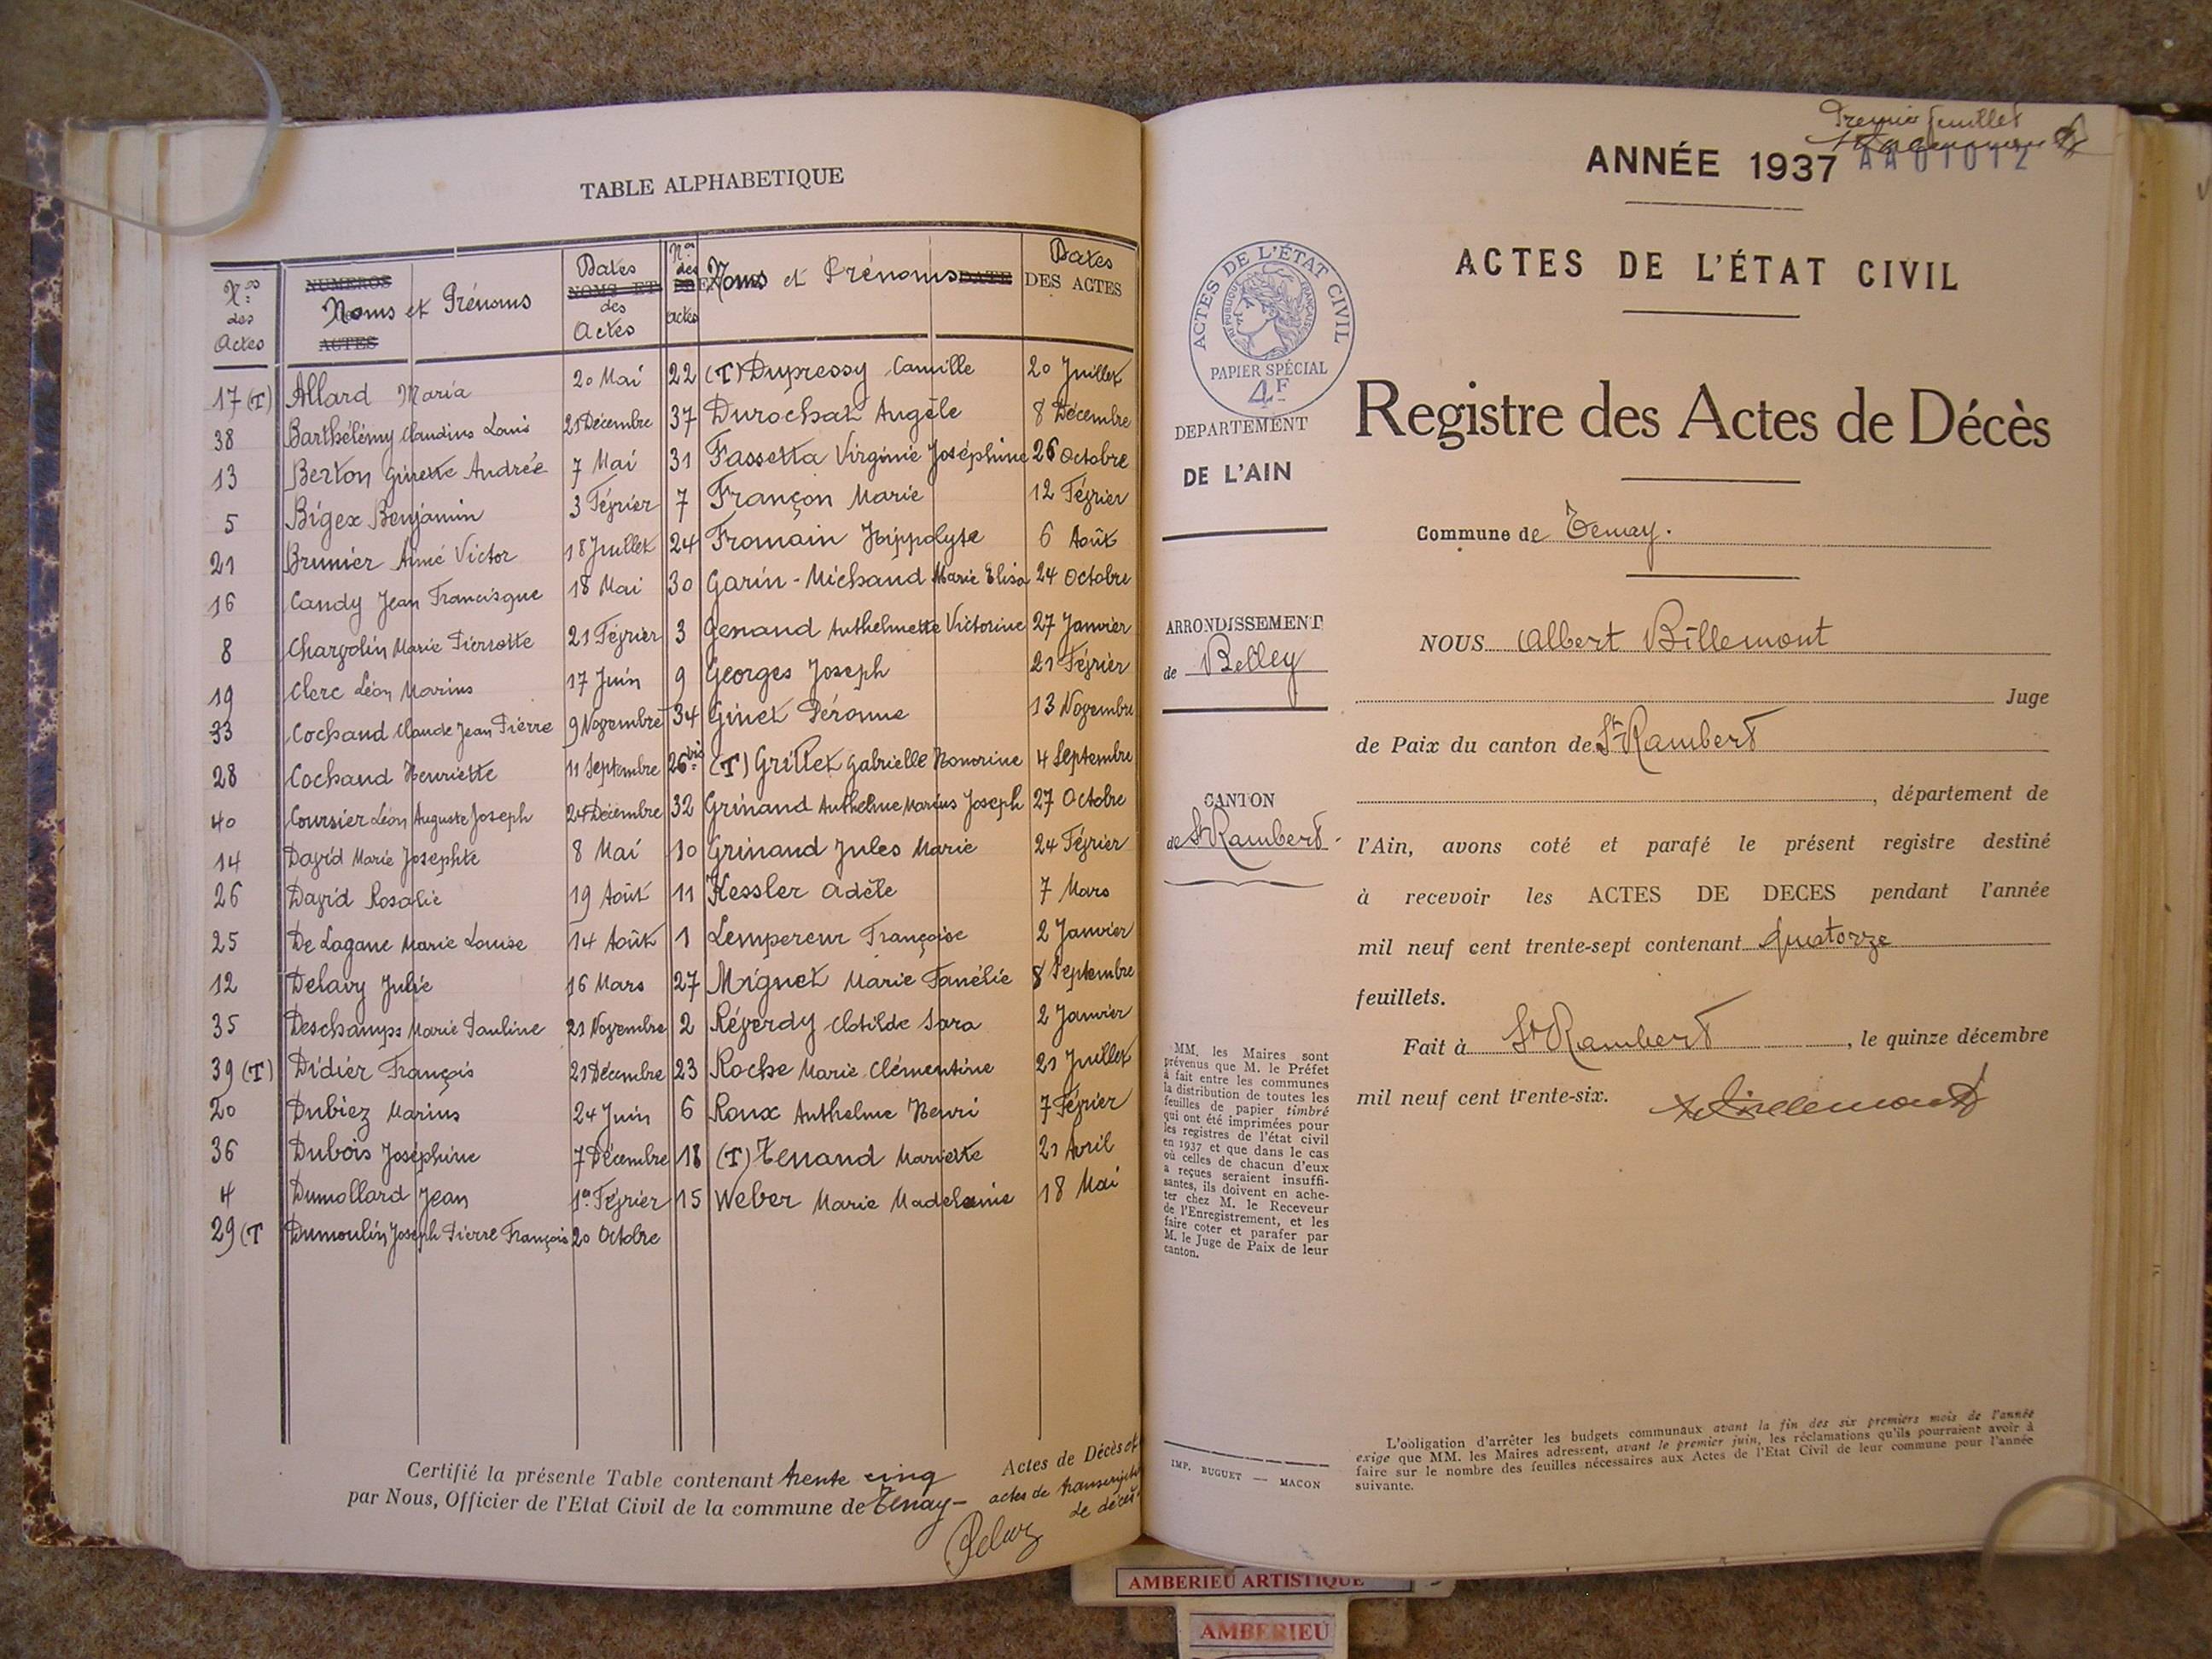 TABLE ALPHABETIQUE
Nos des Actes
NUMEROS
Noms et Prénoms
ACTES
Dates
NOMS ET
des
Actes
Nos des actes
Noms et Prénoms DATE
Dates
DES ACTES
17 (T) Allard Maria 20 Mai
38 Barthélémy Claudius Louis 21 Décembre
13 Berton Ginette Andrée 7 Mai
5 Bigex Benjamin 3 Février
21 Brunier Aimé Victor 18 Juillet
16 Candy Jean Francisque 18 Mai
8 Chargolin Marie Pierrette 21 Février
19 Clerc Léon Marius 17 Juin
33 Cochand Claude Jean Pierre 9 Novembre
28 Cochand Henriette 11 Septembre
40 Coursier Léon Auguste Joseph 24 Décembre
14 David Marie Josephte 8 Mai
26 David Rosalie 19 Août
25 De Lagane Marie Louise 14 Août
12 Delavy Julie 16 Mars
35 Deschamps Marie Pauline 21 Novembre
39 (T) Didier François 21 Décembre
20 Dubiez Marius 24 Juin
36 Dubois Joséphine 7 Décembre
4 Dumollard Jean 1er Février
29 (T Dumoulin Joseph Pierre François 20 Octobre
22 (T) Dupressy Camille 20 Juillet
37 Durochat Angèle 8 Décembre
31 Fassetta Virginie Joséphine 26 Octobre
7 Françon Marie 12 Février
24 Fromain Hippolyte 6 Août
30 Garin-Michaud Marie Elisa 24 Octobre
3 Genand Anthelmette Victorine 27 Janvier
9 Georges Joseph 21 Février
34 Ginet Péronne 13 Novembre
26 bis (T) Grillet Gabrielle Honorine 4 Septembre
32 Grinand Anthelme Marius Joseph 27 Octobre
10 Grinand Jules Marie 24 Février
11 Kessler Adèle 7 Mars
1 Lempereur Françoise 2 Janvier
27 Mignet Marie Fanélie 8 Septembre
2 Réverdy Clotilde Sara 2 Janvier
23 Roche Marie Clémentine 21 Juillet
6 Roux Anthelme Henri 7 Février
18 (T) Tenand Mariette 21 Avril
15 Weber Marie Madeleine 18 Mai
Certifié la présente Table contenant trente cinq Actes de Décès et
actes de transcription
de décès.
par Nous, Officier de l'Etat Civil de la commune de Tenay –
Premier feuillet
ANNÉE 1937 AA01012
ACTES DE L'ÉTAT CIVIL
Registre des Actes de Décès
Commune de Tenay.
ACTES DE L'ÉTAT CIVIL
RÉPUBLIQUE FRANÇAISE
PAPIER SPÉCIAL
4F
DEPARTEMENT
DE L'AIN
ARRONDISSEMENT
de Belley
CANTON
de St Rambert
MM. les Maires sont
prévenus que M. le Préfet
a fait entre les communes
la distribution de toutes les
feuilles de papier timbré
qui ont été imprimées pour
les registres de l'état civil
en 1937 et que dans le cas
où celles de chacun d'eux
a reçues seraient insuffi-
santes, ils doivent en ache-
ter chez M. le Receveur
de l'Enregistrement, et les
faire coter et parafer par
M. le Juge de Paix de leur
canton.
IMP. BUGUET — MACON
NOUS Albert Billemont
Juge
de Paix du canton de St Rambert
, département de
l'Ain, avons coté et parafé le présent registre destiné
à recevoir les ACTES DE DECES pendant l'année
mil neuf cent trente-sept contenant quatorze
feuillets.
Fait à St Rambert, le quinze décembre
mil neuf cent trente-six.
L'obligation d'arrêter les budgets communaux avant la fin des six premiers mois de l'année
exige que MM. les Maires adressent, avant le premier juin, les réclamations qu'ils pourraient avoir à
faire sur le nombre des feuilles nécessaires aux Actes de l'Etat Civil de leur commune pour l'année
suivante.
AMBERIEU ARTISTIQUE
AMBERIEU